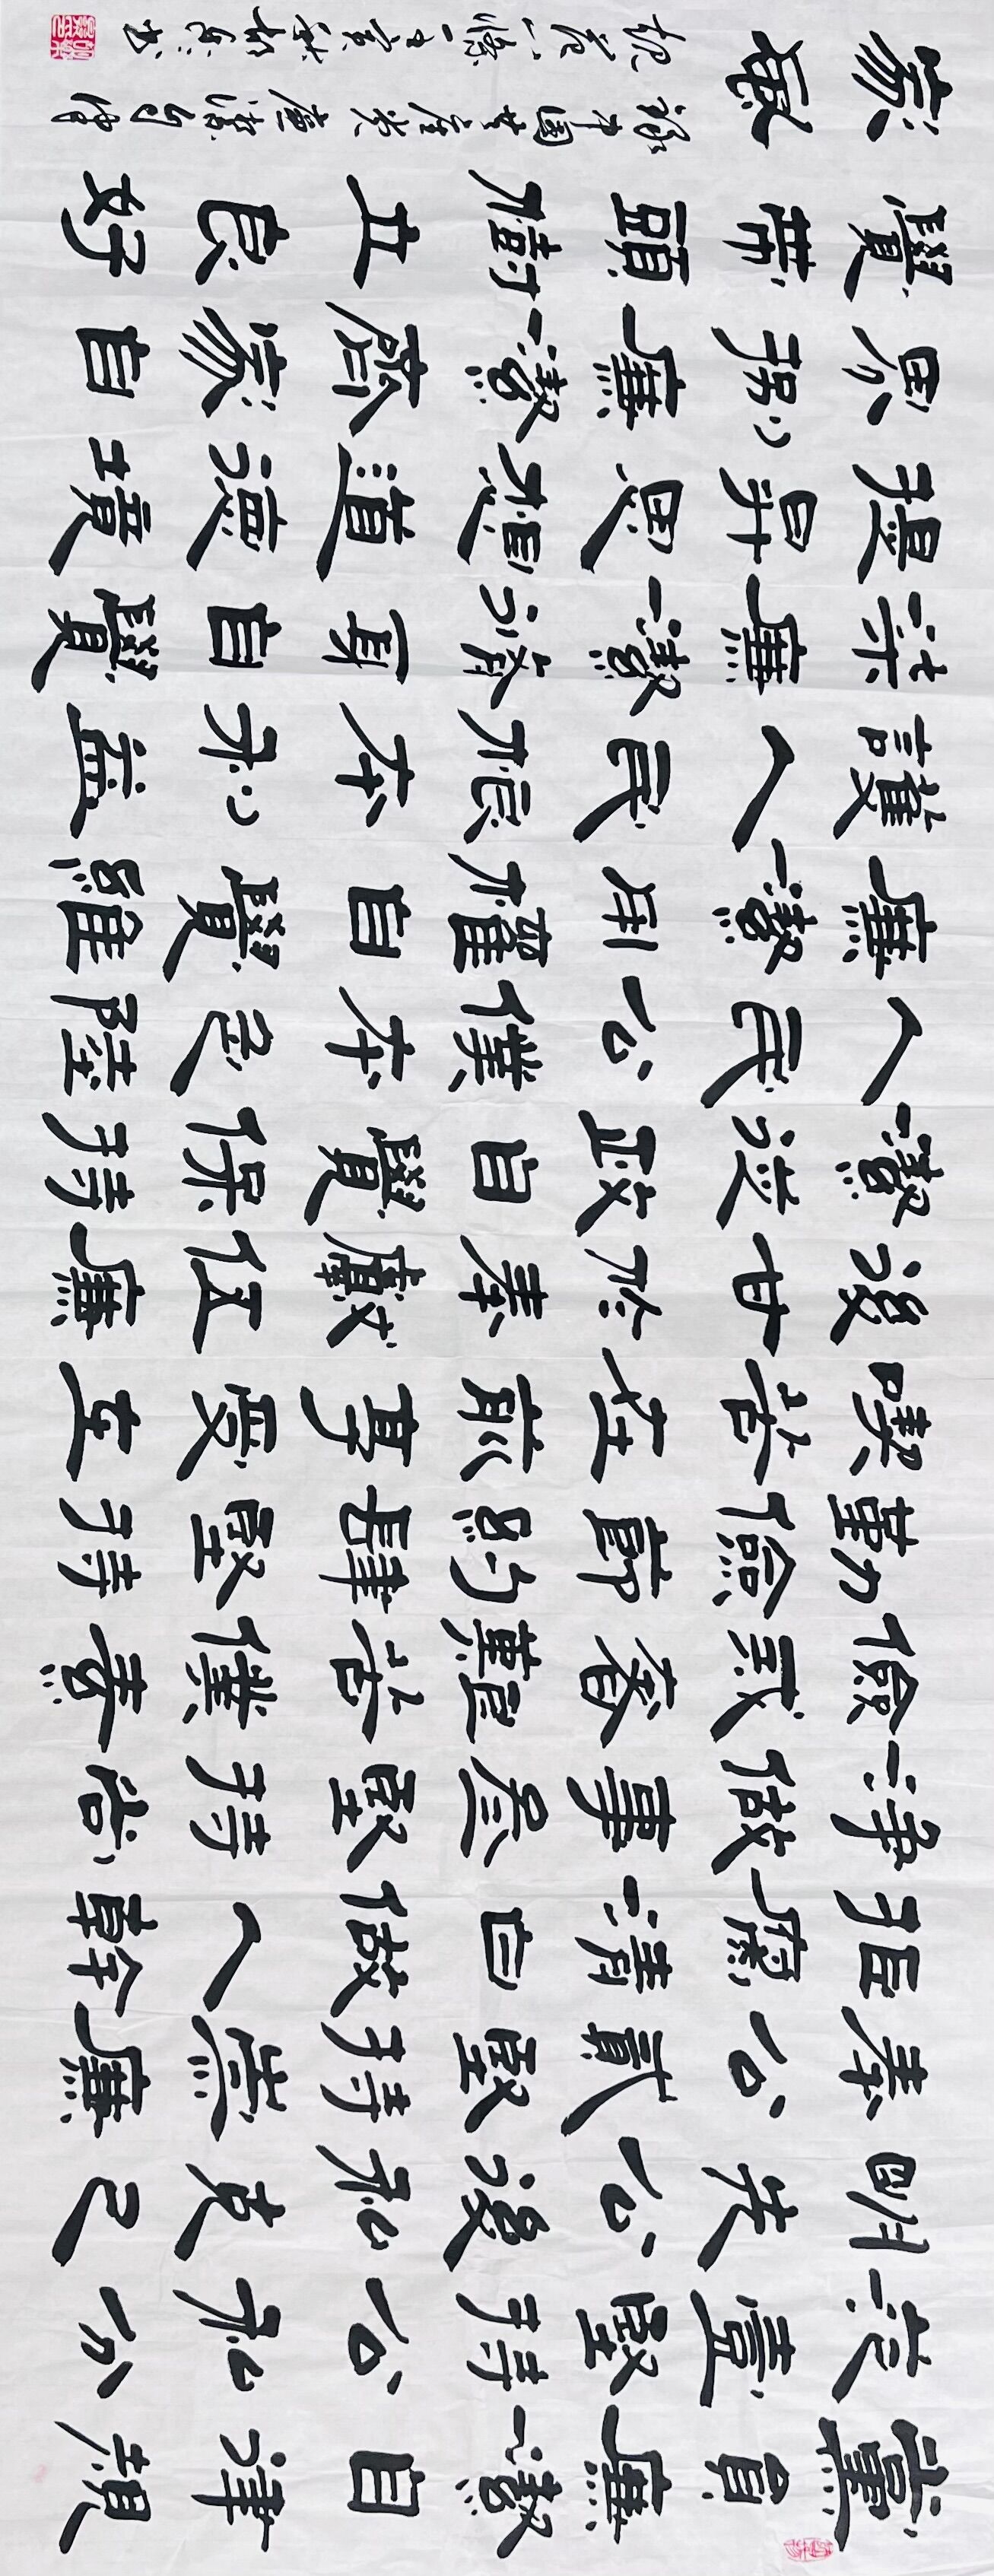 黨員廉潔自律規
范壹堅持公私分
明先公後私克己
奉公貳堅持崇廉
拒腐清白做人幹
净做事叁堅持尚
儉戒奢艱苦僕素
勤儉節約肆堅持
喫苦在前享受在
後甘於奉獻伍廉
潔從政自覺保持
人民公僕本色陸
廉潔用權自覺維
護人民根本利益
柒廉潔脩身自覺
提昇思想道德境
界捌廉潔齊家自
覺帶頭樹立良好
家風
錄中國共産党廉潔自律
規范八條壬寅秋胡书